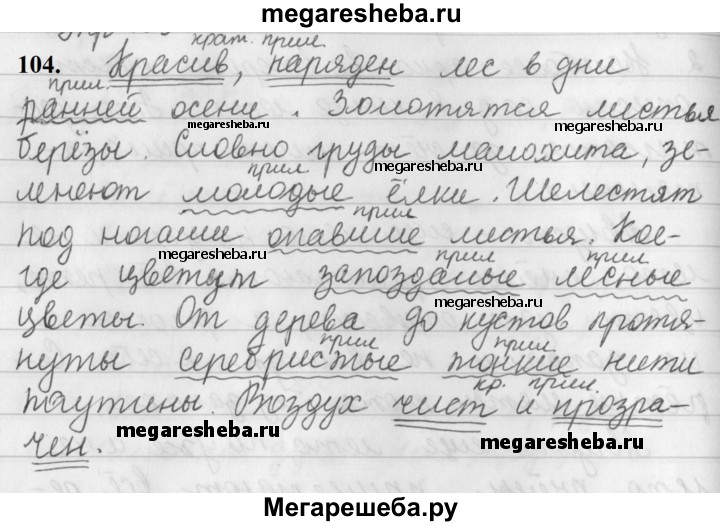 megaresheba.ru
крат. прил.
104. Красив, наряден лес в дни
прил.
ранней осени. Золотятся листья
megaresheba.ru megaresheba.ru
берёзы. Словно груды малахита, зе-
прил. megaresheba.ru
ленеют молодые ёлки. Шелестят
прил
под ногами опавшие листья. Кое-
megaresheba.ru прил прил
где цветут запоздалые лесные
megaresheba.ru
цветы. От дерева до кустов протя-
прил прил.
нуты серебристые тонкие нити
megaresheba.ru кр. прил.
паутины. Воздух чист и прозра-
megaresheba.ru megaresheba.ru
чен.
Мегарешеба.ру